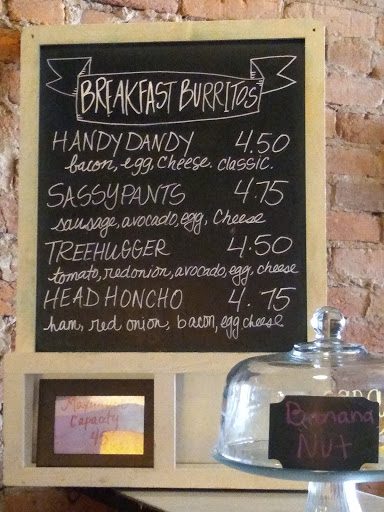 BREAKFAST BURRITOS
HANDY DANDY 4.50
bacon, egg, cheese. classic.
SASSYPANTS 4.75
sausage, avocado, egg, cheese
TREEHUGGER 4.50
tomato, red onion, avocado, egg, cheese
HEAD HONCHO 4.75
ham, red onion, bacon, egg cheese
Maximum
Capacity
45
Banana
Nut